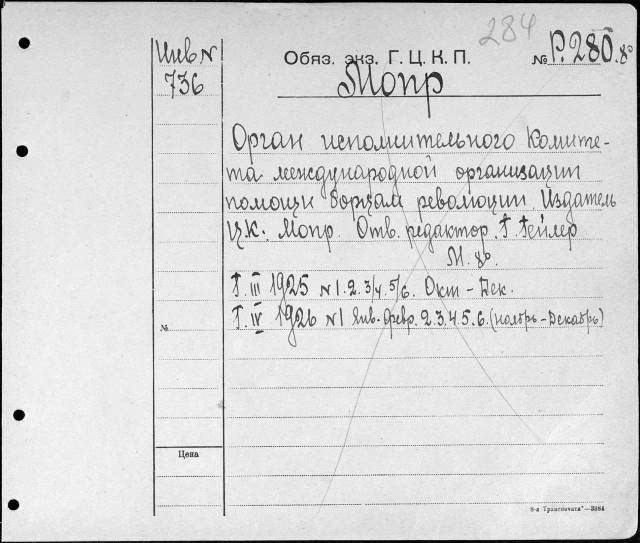 284
Инв N
736
Обяз. экз. Г. Ц. К. П.
№ Р. 280. 8°
Мопр
Орган исполнительного Комите-
та международной организации
помощи борцам революции. Издатель
Ц.К. Мопр. Отв. редактор. Т. Гейлер
М. 8°.
Т. III 1925 N 1. 2. 3/4. 5/6. Окт - Дек.
Т. IV 1926 N 1 Янв.-февр. 2. 3. 4. 5. 6. (ноябрь - Декабрь)
№
Цена
8-я „Транспечати“—3884